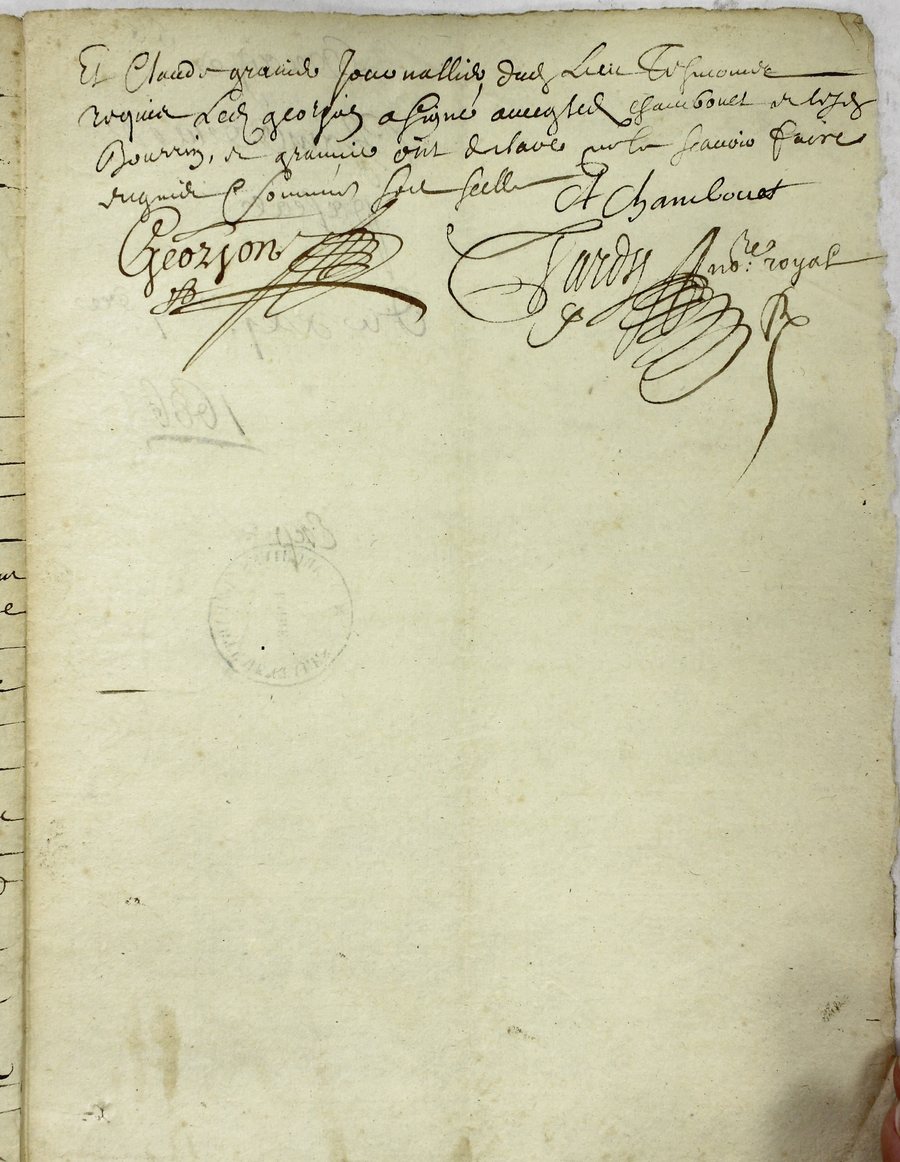 Et Claude granie Journallier dud Lieu Tesmoins
requis Led georjon a signé avec led chambouet et lesd
Bourrin, et granie ont declaré ne le scavoir faire
enquis et sommes soit scelle
A Chambouet
Georjon
Tardy no.re royal